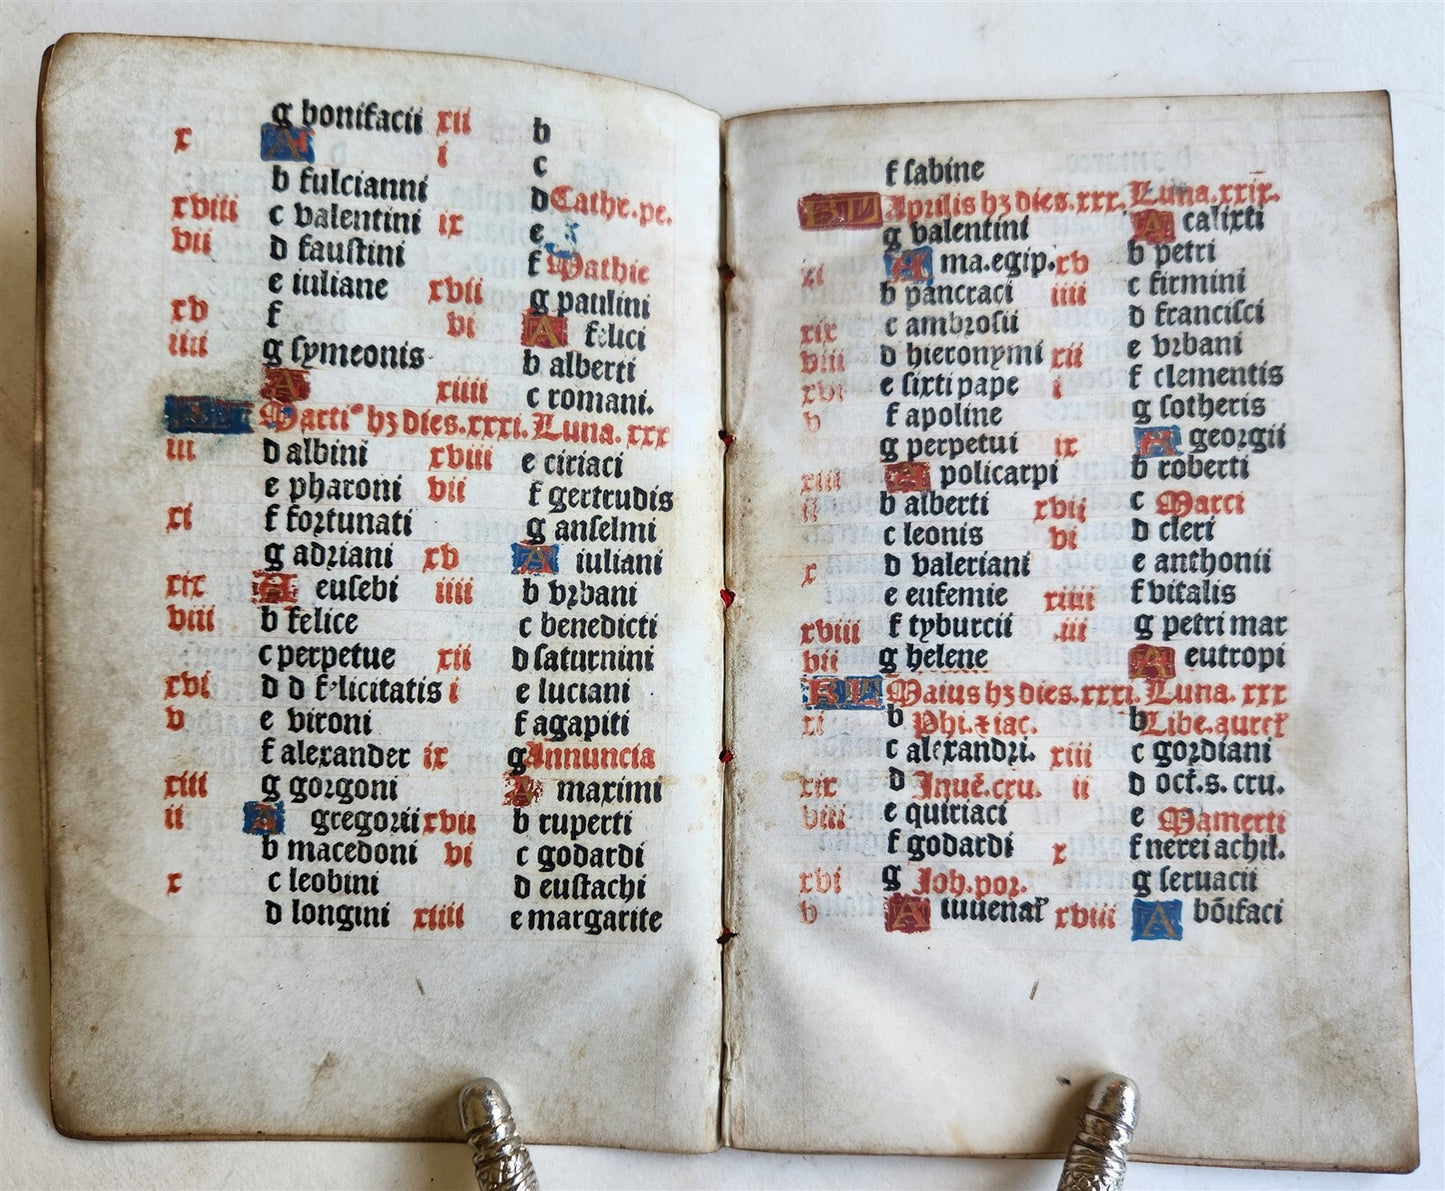 g bonifacii xii b
x A i c
b fulcianni d Cathe. pe.
xviii c valentini ix e
vii d faustini f Mathie
e iuliane xvii g paulini
xv f vi A felici
iiii g symeonis b alberti
A xiiii c romani.
KL Marti⁹ hꝫ dies. xxxi. Luna. xxx
iii d albini xviii e ciriaci
e pharoni vii f gertrudis
xi f fortunati g anselmi
g adriani xv A iuliani
xix A eusebi iiii b vrbani
viii b felice c benedicti
c perpetue xii d saturnini
xvi d d felicitatis i e luciani
v e vironi f agapiti
f alexander ix g Annuncia
xiii g gorgoni A maximi
ii A gregorii xvii b ruperti
b macedoni vi c godardi
x c leobini d eustachi
d longini xiiii e margarite
f sabine
KL Aprilis hꝫ dies. xxx. Luna. xxix.
g valentini A calixti
xi A ma. egip. xv b petri
b pancraci iiii c firmini
xix c ambrosii d francisci
viii d hieronymi xii e vrbani
xvi e sixti pape i f clementis
v f apoline g sotheris
g perpetui ix A georgii
xiii A policarpi b roberti
ii b alberti xvii c Marci
c leonis vi d cleri
x d valeriani e anthonii
e eufemie xiiii f vitalis
xviii f tyburcii .iii g petri mar
vii g helene A eutropi
KL Maius hꝫ dies. xxxi. Luna. xxx
xi b Phi. ⁊ iac. b Libe. aureꝝ
c alexandri. xiii c gordiani
xix d Inuē. cru. ii d oct. s. cru.
viii e quiriaci e Mamerti
f godardi x f nerei achil.
xvi g Joh. por. g seruacii
v A iuuenaꝝ xviii A bōifaci